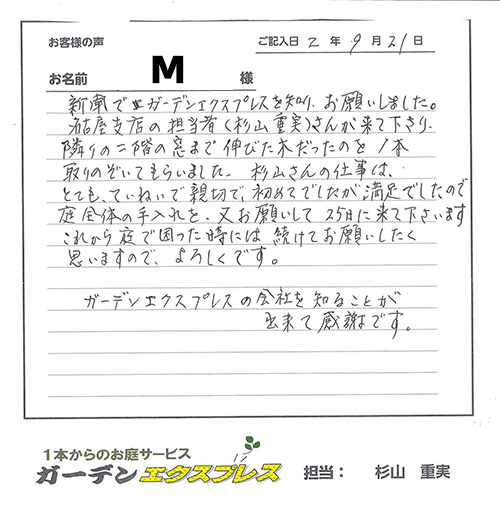 お客様の声
ご記入日 2 年 9 月 21 日
お名前 M 様
新聞でガーデンエクスプレスを知り、お願いしました。
名古屋支店の担当者(杉山重実)さんが来て下さり、
隣りの二階の窓まで伸びた木だったのを1本
取りのぞいてもらいました。杉山さんの仕事は、
とても、ていねいで親切で、初めてでしたが満足でしたので
庭全体の手入れを、又お願いして25日に来て下さいます
これから庭で困った時には続けてお願いしたく
思いますので、よろしくです。
ガーデンエクスプレスの会社を知ることが
出来て感謝です。
1本からのお庭サービス
ガーデンエクスプレス 担当: 杉山 重実